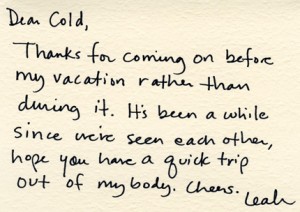 Dear Cold,
Thanks for coming on before
my vacation rather than
during it. It's been a while
since we've seen each other,
hope you have a quick trip
out of my body. Cheers.
Leah